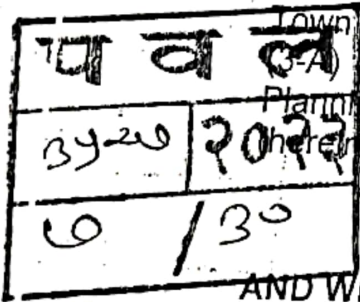 Town
प व ल (3-A)
Planni
३५२७ २०२२ herein
७ / ३०
AND W